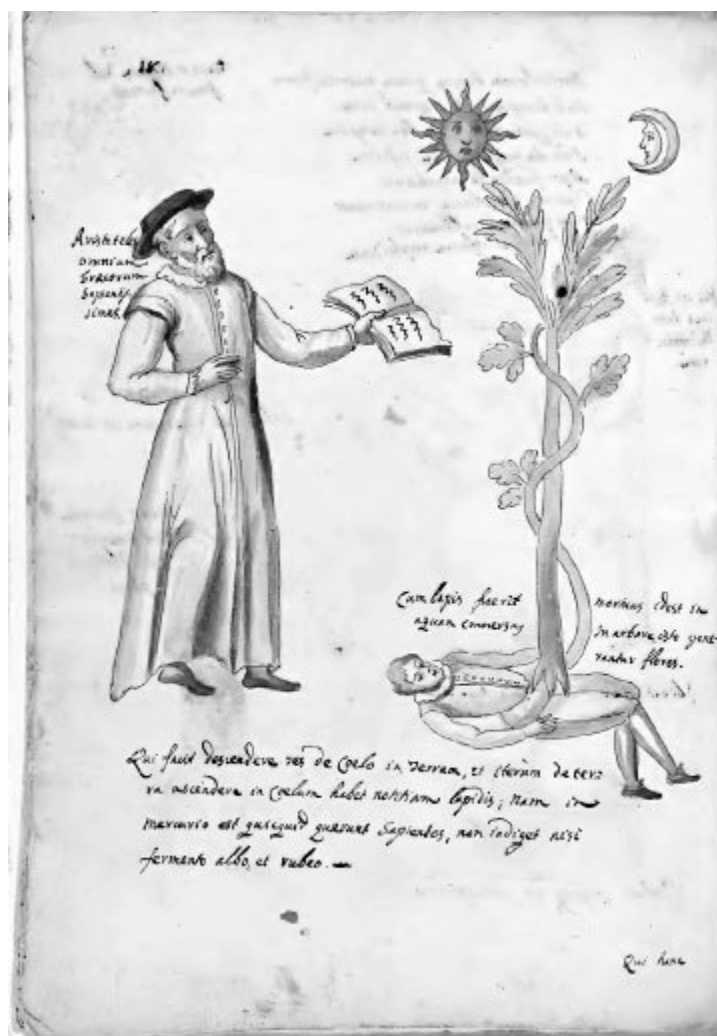 Aristotelis
omnium
Graecorum
Sapientis
simus.
Cum lapis fuerit mortuus idest in
aquam conversus in arbore iste gene
rantur flores.
Qui facit descendere res de Coelo in Terram, et iterum de ter
ra ascendere in Coelum habet notitiam lapidis; nam in
mercurio est quicquid querunt Sapientes, non indiget nisi
fermento albo, et rubeo.
Qui hanc